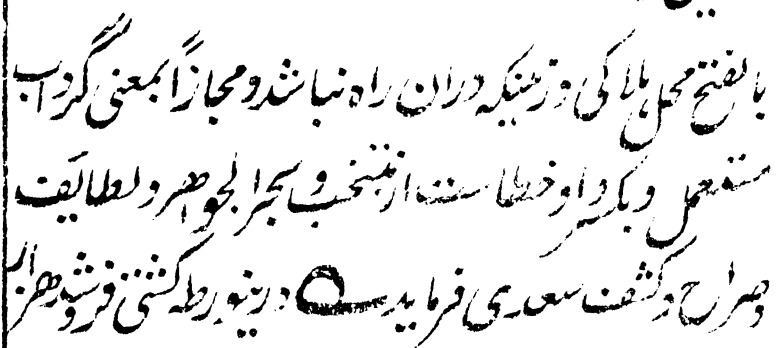 بالفتح محل هلاکی و زمینکه دران راه نباشد و مجازاً بمعنی گرداب
مستعمل و بکسر واو خطا ست از منتخب و بحر الجواهر و لطایف
و صراح و کشف سعدی فرماید ــه درینورطه کشتی فروشد هزار